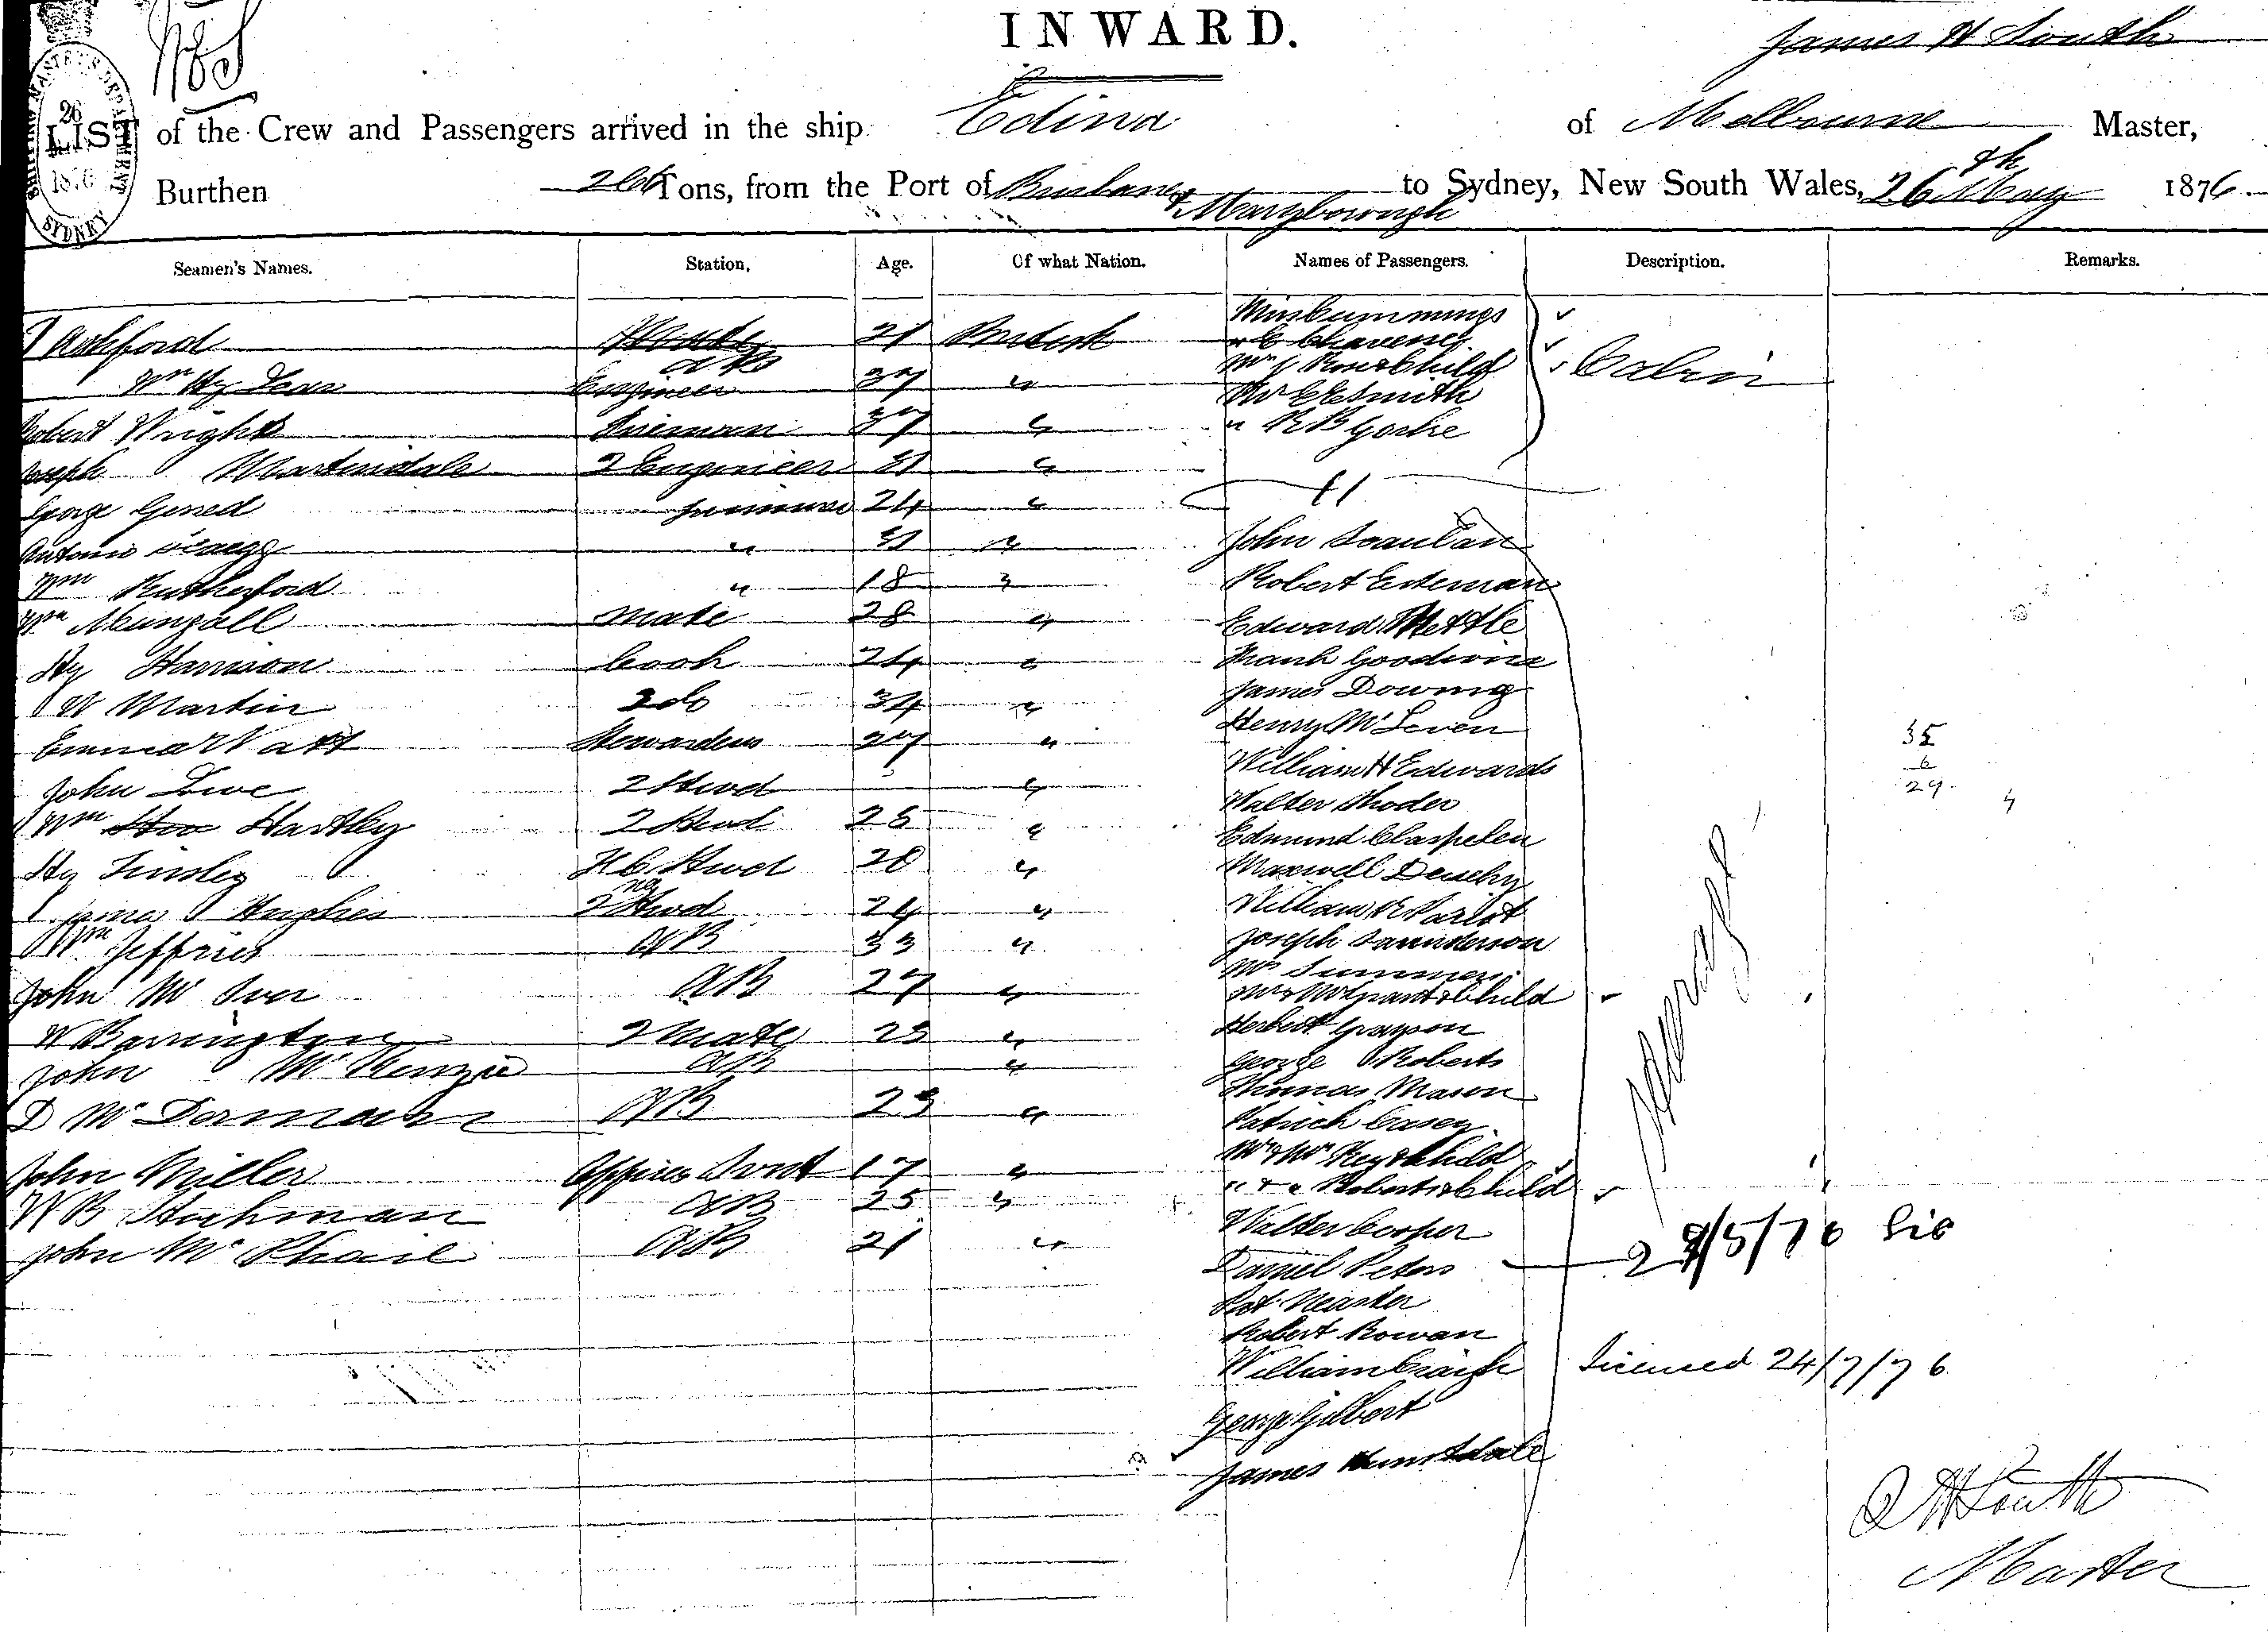 INWARD.
James H South
LIST of the Crew and Passengers arrived in the ship Edina of Melbourne Master,
Burthen 266 Tons, from the Port of Brisbane & Maryborough to Sydney, New South Wales, 26th May 1876.
SYDNEY
Seamen's Names. Station. Age. Of what Nation. Names of Passengers. Description. Remarks.
Ashford AB 21 British
Wm Hy Engineer 37 "
Robert Wright Fireman 37 "
Joseph Martindale 2 Engineer 31 "
George Gerred 24 "
Antonio " 31 "
Wm Rutherford " 18 "
Wm Mungall Mate 28 "
Hy Harrison Cook 24 "
W Martin 2 do 34 "
Emma Watt Stewardess 27 "
John Lowe 2 Stwd "
Wm Hartley 2 Stwd 25 "
Hy Tinsley Stwd 20 "
James Hughes 2 Stwd 24 "
Wm Jeffries AB 33 "
John McIver AB 27 "
W Barrington 2 Mate 23 "
John McKenzie AB "
D McDermott AB 23 "
John Miller 17 "
W B Stockman AB 25 "
John McPhail AB 21 "
Miss Cummings
Mrs & Child
Mr E E Smith
" R B
Cabin
John Scanlan
Robert Esteman
Edward Mettle
Frank Goodwine
James Downing
Henry McLeven
William H Edwards
Walter Rhodes
Edmund
Maxwell
William
Joseph Saunderson
Mr Summers
Mr & Mrs Grant & Child
Herbert Grayson
George Roberts
Thomas Mason
Patrick Casey
Mr & Mrs Key & child
" & " Roberts & Child
Walter Cooper
Daniel Peters
Pat
Robert Rowan
William Craigh
George Gilbert
James
Steerage
35
6
29
29/5/76 Lic
Licensed 24/7/76
J H South
Master